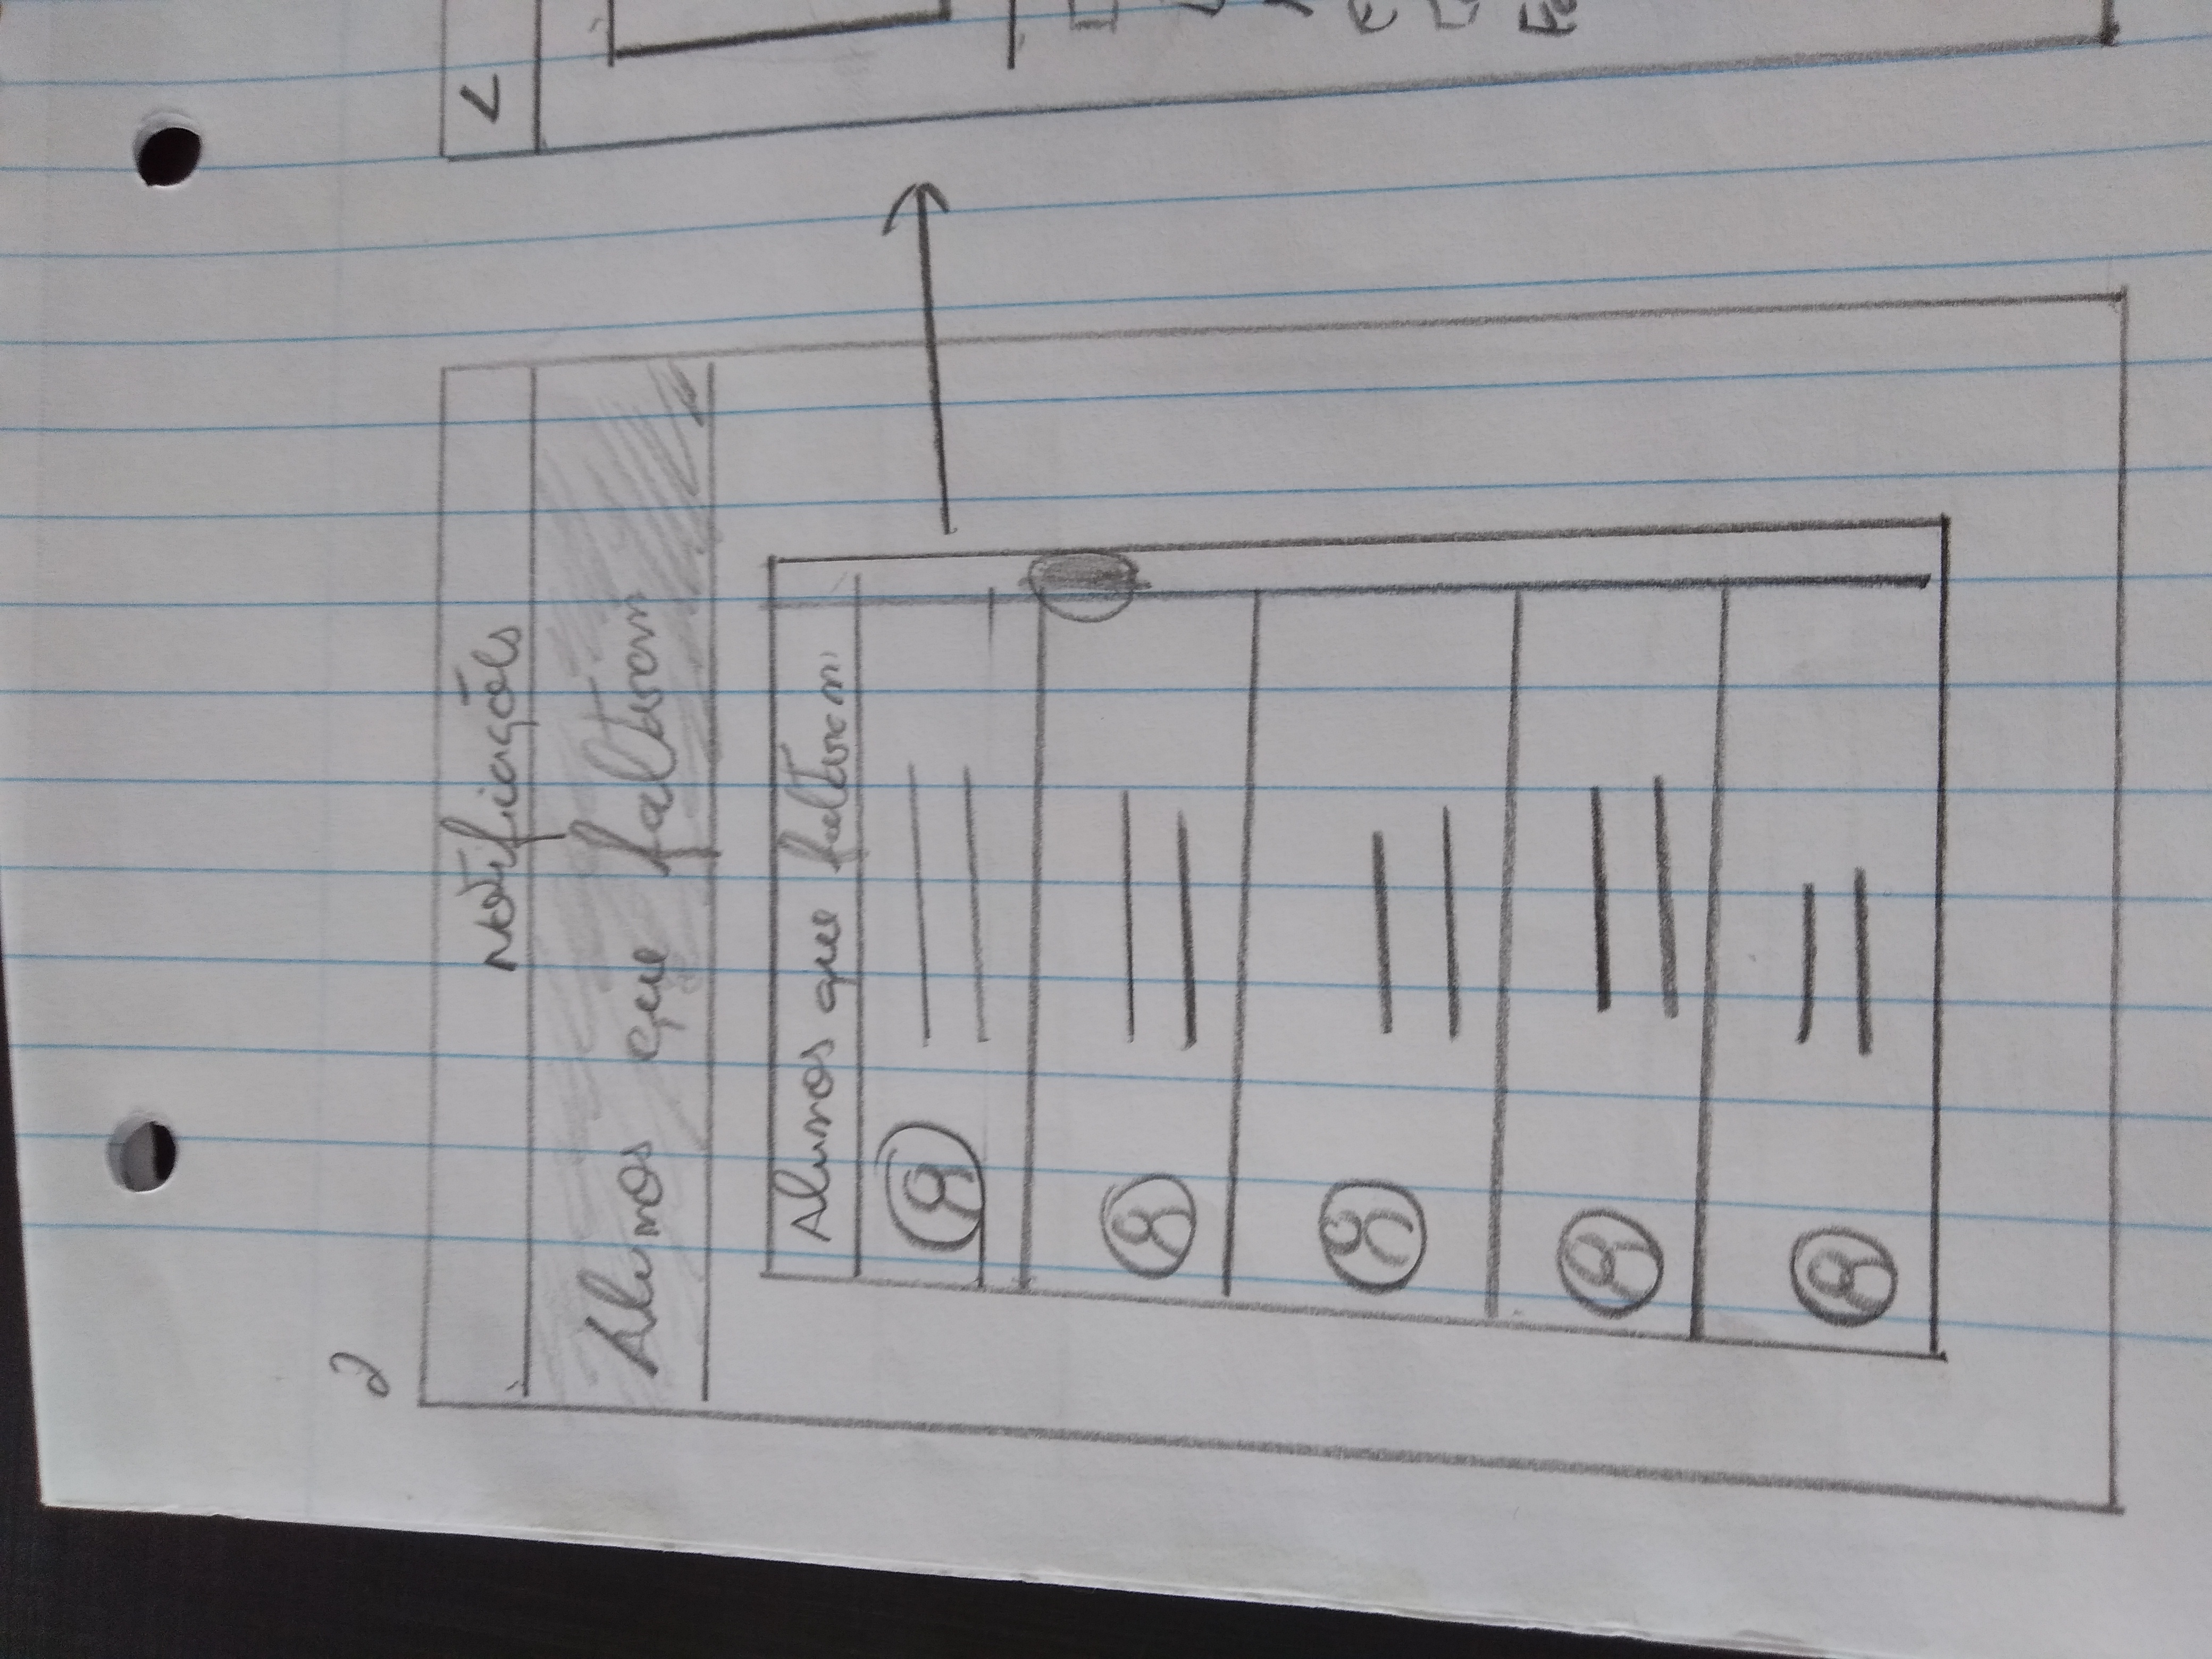 2
Notificações
Alunos que faltaram
Alunos que faltaram
<